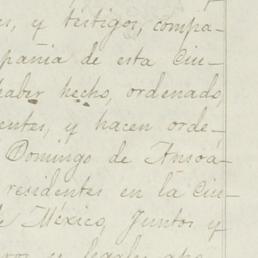 es, y testigos, compa-
pañia de esta Ciu-
haber hecho, ordenado,
entes, y hacen orde-
Domingo de Ansoá-
residentes en la Ciu-
de México, Juntos y